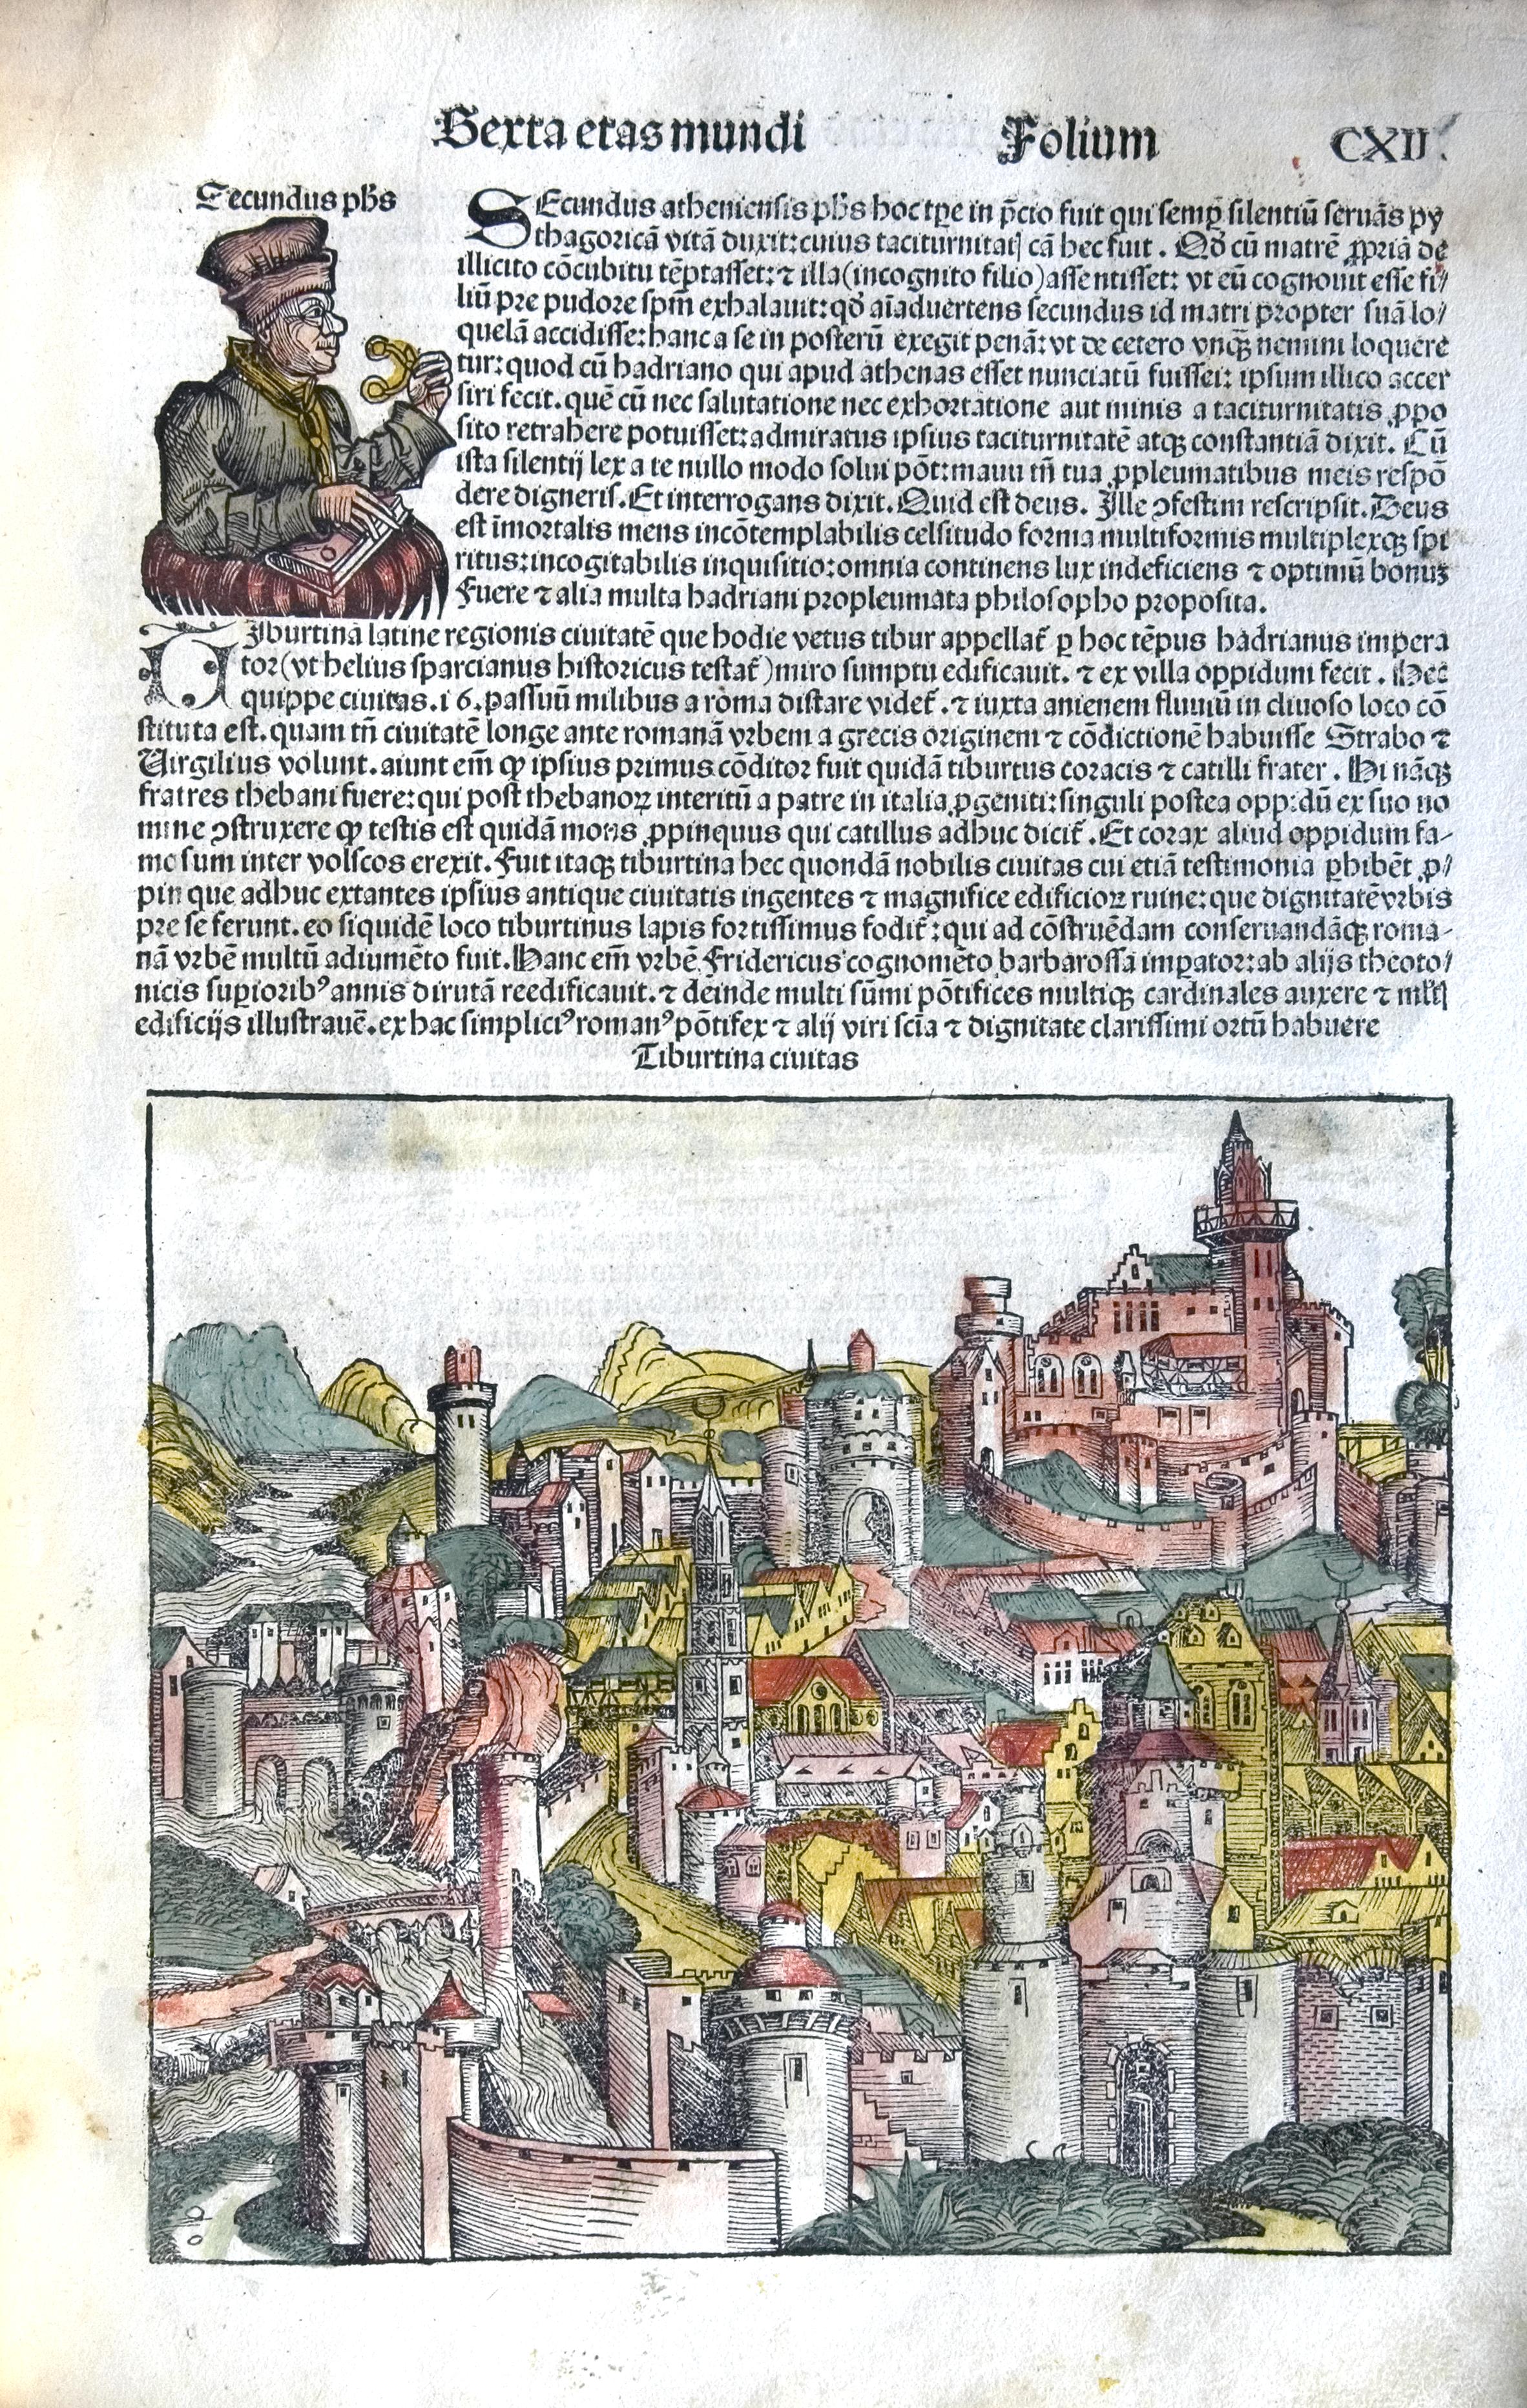 Sexta etas mundi Folium CXII
Secundus phs
SEcundus atheniensis phs hoc tpe in p̄cio fuit qui semp silentiū seruās py
thagoricā vitā duxit: cuius taciturnitatꝭ cā hec fuit. Qd̄ cū matrē ꝓpriā de
illicito cōcubitu tēptasset: ⁊ illa (incognito filio) assentisset: vt eū cognouit esse fi/
liū pre pudore spm̄ exhalauit: qd̄ aīaduertens secundus id matri propter suā lo/
quelā accidisse: hanc a se in posterū exegit penā: vt de cetero vnqꝫ nemini loquere
tur: quod cū hadriano qui apud athenas esset nunciatū fuisset: ipsum illico accer
siri fecit. quē cū nec salutatione nec exhortatione aut minis a taciturnitatis ꝓpo
sito retrahere potuisset: admiratus ipsius taciturnitatē atqꝫ constantiā dixit. Cū
ista silentij lex a te nullo modo solui pōt: manu tn̄ tua ꝓpleumatibus meis respō
dere digneris. Et interrogans dixit. Quid est deus. Ille ꝯfestim rescripsit. Deus
est īmortalis mens incōtemplabilis celsitudo forma multiformis multiplexqꝫ spi
ritus: incogitabilis inquisitio: omnia continens lux indeficiens ⁊ optimū bonuꝫ
Fuere ⁊ alia multa hadriani propleumata philosopho proposita.
TIburtinā latine regionis ciuitatē que hodie vetus tibur appellat̄ ꝑ hoc tēpus hadrianus impera
tor (vt helius sparcianus historicus testat̄) miro sumptu edificauit. ⁊ ex villa oppidum fecit. Hec
quippe ciuitas. 16. passuū milibus a roma distare videt̄. ⁊ iuxta anienem fluuiū in cliuoso loco cō
stituta est. quam tn̄ ciuitatē longe ante romanā vrbem a grecis originem ⁊ cōdictionē habuisse Strabo ⁊
Uirgilius volunt. aiunt em̄ ꝙ ipsius primus cōditor fuit quidā tiburtus coracis ⁊ catilli frater. Hi nāqꝫ
fratres thebani fuere: qui post thebanoꝝ interitū a patre in italia ꝓgeniti: singuli postea oppidū ex suo no
mine ꝯstruxere ꝙ testis est quidā mons ꝓpinquus qui catillus adhuc dicit̄. Et corax aliud oppidum fa-
mosum inter volscos erexit. Fuit itaqꝫ tiburtina hec quondā nobilis ciuitas cui etiā testimonia ꝑhibēt ꝓ/
pinque adhuc extantes ipsius antique ciuitatis ingentes ⁊ magnifice edificioꝝ ruine: que dignitatē vrbis
pre se ferunt. eo siquidē loco tiburtinus lapis fortissimus fodit̄: qui ad cōstruēdam conseruandāqꝫ roma-
nā vrbē multū adiumēto fuit. Hanc em̄ vrbē Fridericus cognomēto barbarossa impator: ab alijs theoto/
nicis superioribꝰ annis dirutā reedificauit. ⁊ deinde multi sūmi pōtifices multiqꝫ cardinales auxere ⁊
edificijs illustrauē. ex hac simpliciꝰ romanꝰ pōtifex ⁊ alij viri scīa ⁊ dignitate clarissimi ortū habuere
Tiburtina ciuitas